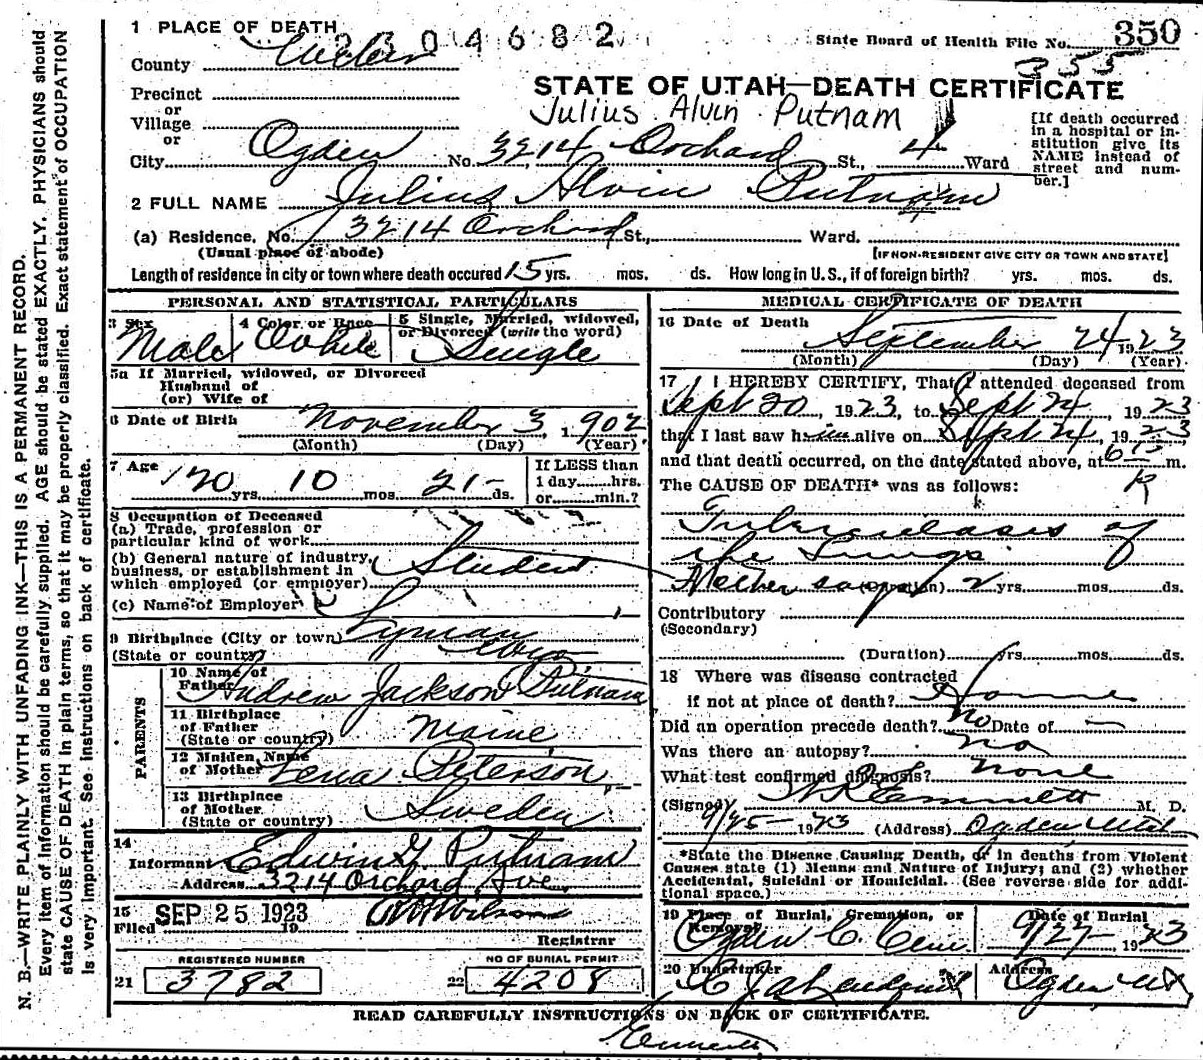 1 PLACE OF DEARTH
2304682
State Board of Health File No. 350
355
County Weber
STATE OF UTAH—DEATH CERTIFICATE
Precinct
or
Village
or
Julius Alvin Putnam
[If death occurred in a hospital or institution give its NAME instead of street and number.]
City Ogden No. 3214 Orchard St., 4 Ward
2 FULL NAME Julius Alvin Putnam
(a) Residence. No. 3214 Orchard St., Ward.
(Usual place of abode) [IF NON-RESIDENT GIVE CITY OR TOWN AND STATE]
Length of residence in city or town where death occured 15 yrs. mos. ds. How long in U.S., if of foreign birth? yrs. mos. ds.
PERSONAL AND STATISTICAL PARTICULARS
3 Sex Male
4 Color or Race White
5 Single, Married, widowed, or Divorced (write the word) Single
5a If Married, widowed, or Divorced
Husband of
(or) Wife of
6 Date of Birth November 3, 1902
(Month) (Day) (Year)
7 Age 20 yrs. 10 mos. 21 ds.
If LESS than
1 day hrs.
or min.?
8 Occupation of Deceased
(a) Trade, profession or
particular kind of work
(b) General nature of industry,
business, or establishment in
which employed (or employer) Student
(c) Name of Employer
9 Birthplace (City or town) Lyman
(State or country) Wyo
PARENTS
10 Name of Father Andrew Jackson Putnam
11 Birthplace
of Father Maine
(State or country)
12 Maiden Name
of Mother Lena Peterson
13 Birthplace
of Mother Sweden
(State or country)
14
Informant Edwin G Putnam
Address 3214 Orchard Ave.
15 SEP 25 1923
Filed 19 Wilson
Registrar
REGISTERED NUMBER
21 3782
NO OF BURIAL PERMIT
22 4208
MEDICAL CERTIFICATE OF DEATH
16 Date of Death September 24 1923
(Month) (Day) (Year)
17 I HEREBY CERTIFY, That I attended deceased from
Sept 20, 1923, to Sept 24, 1923
that I last saw him alive on Sept 24, 1923
and that death occurred, on the date stated above, at 6 15 m.
The CAUSE OF DEATH* was as follows:
Tuberculosis of
the Lungs
Mother says (Duration) 2 yrs. mos. ds.
Contributory
(Secondary)
(Duration) yrs. mos. ds.
18 Where was disease contracted
if not at place of death? Home
Did an operation precede death? no Date of —
Was there an autopsy? no
What test confirmed diagnosis? none
(Signed) Emmett M. D.
9/25 1923 (Address) Ogden Utah
*State the Disease Causing Death, or in deaths from Violent
Causes state (1) Means and Nature of Injury; and (2) whether
Accidental, Suicidal or Homicidal. (See reverse side for additional space.)
19 Place of Burial, Cremation, or Removal Ogden C. Cem.
Date of Burial 9/27 1923
20 Undertaker
Address Ogden Ut
READ CAREFULLY INSTRUCTIONS ON BACK OF CERTIFICATE.
Emmett
N. B.—WRITE PLAINLY WITH UNFADING INK—THIS IS A PERMANENT RECORD.
Every item of information should be carefully supplied. AGE should be stated EXACTLY. PHYSICIANS should
state CAUSE OF DEATH in plain terms, so that it may be properly classified. Exact statement of OCCUPATION
is very important. See instructions on back of certificate.